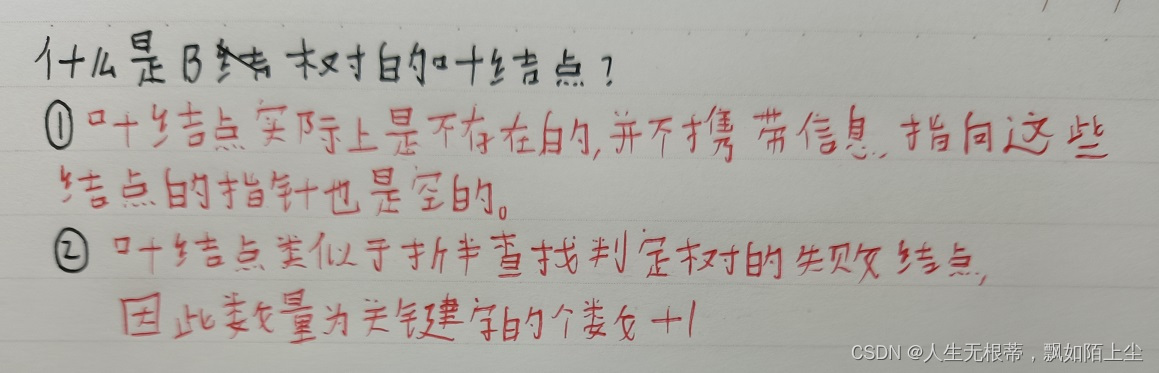 什么是B树的叶结点?
①叶结点实际上是不存在的,并不携带信息,指向这些
结点的指针也是空的。
②叶结点类似于折半查找判定树的失败结点,
因此数量为关键字的个数+1
CSDN @人生无根蒂，飘如陌上尘